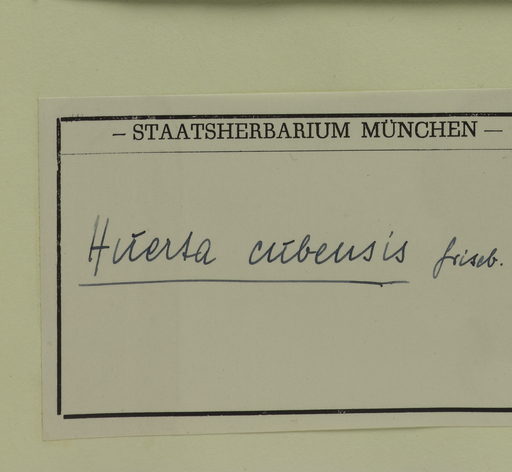 – STAATSHERBARIUM MÜNCHEN –
Huerta cubensis Griseb.